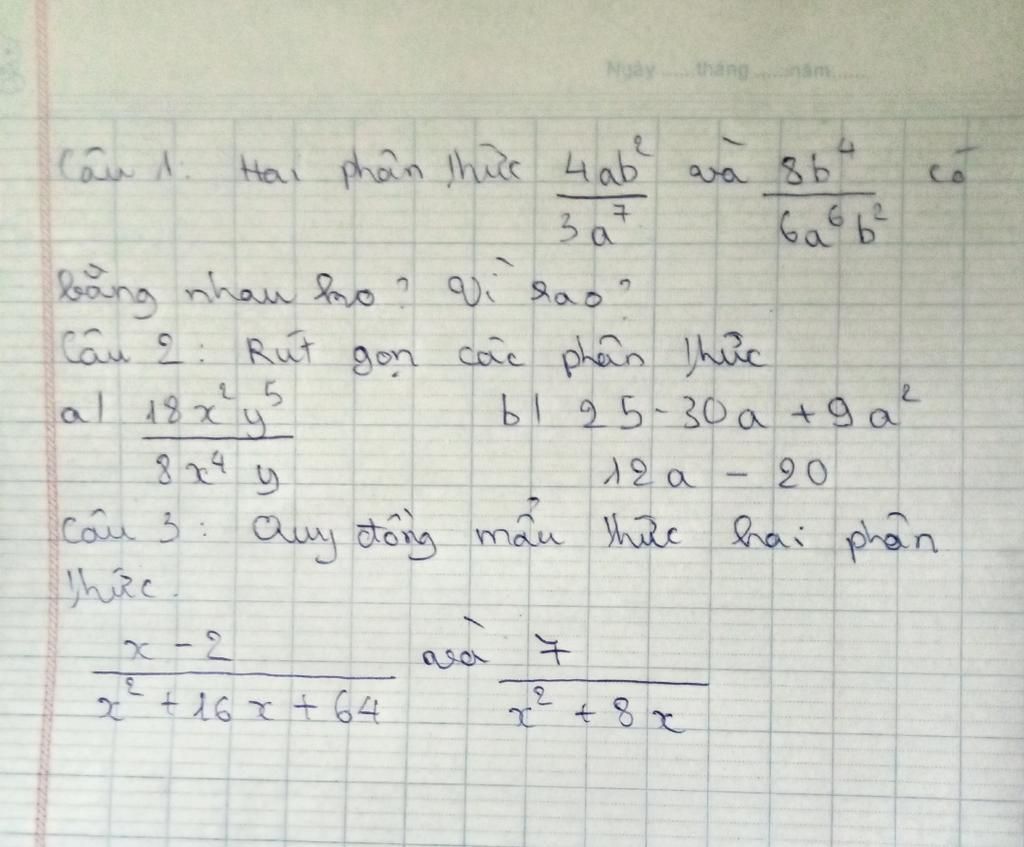 Ngày ..... tháng ..... năm .....
Câu 1. Hai phân thức \frac{4ab^2}{3a^7} và \frac{8b^4}{6a^6b^2} có
bằng nhau ko? Vì sao?
Câu 2: Rút gọn các phân thức
a) \frac{18x^2y^5}{8x^4y} b) 25-30a+9a^2
12a - 20
Câu 3: Quy đồng mẫu thức hai phân
thức.
\frac{x-2}{x^2+16x+64} và \frac{7}{x^2+8x}